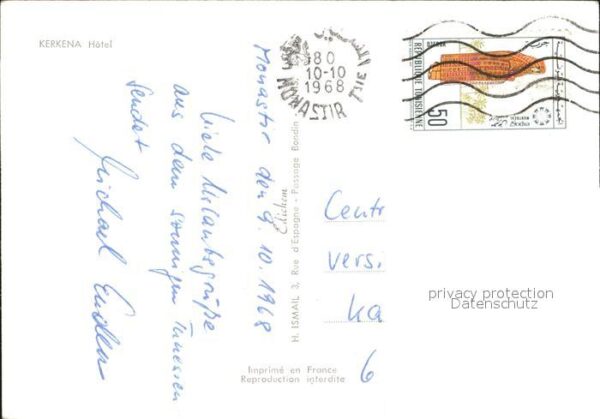 KERKENA Hôtel
Monastir den 9.10.1968
Viele Urlaubsgrüße
aus dem sonnigen Tunesien
sendet
Michael
H. ISMAIL 3, Rue d'Espagne - Passage Bondin
Imprimé en France
Reproduction interdite
80
10-10
1968
MONASTIR
REPUBLIQUE TUNISIENNE
50
Centr
versi
ka
6
privacy protection
Datenschutz